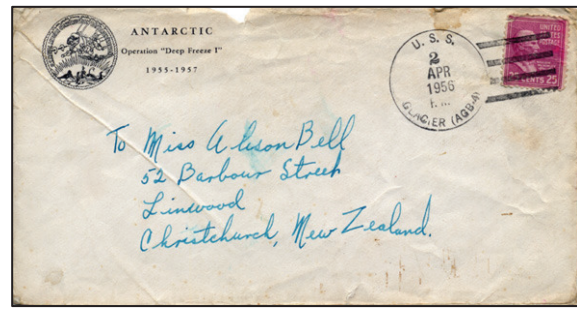 ANTARCTIC
Operation "Deep Freeze I"
1955-1957
U. S. S.
2
APR
1956
GLACIER (AGB-4)
UNITED
STATES
POSTAGE
CENTS 25
To Miss Alison Bell
52 Barbour Street
Linwood
Christchurch, New Zealand.